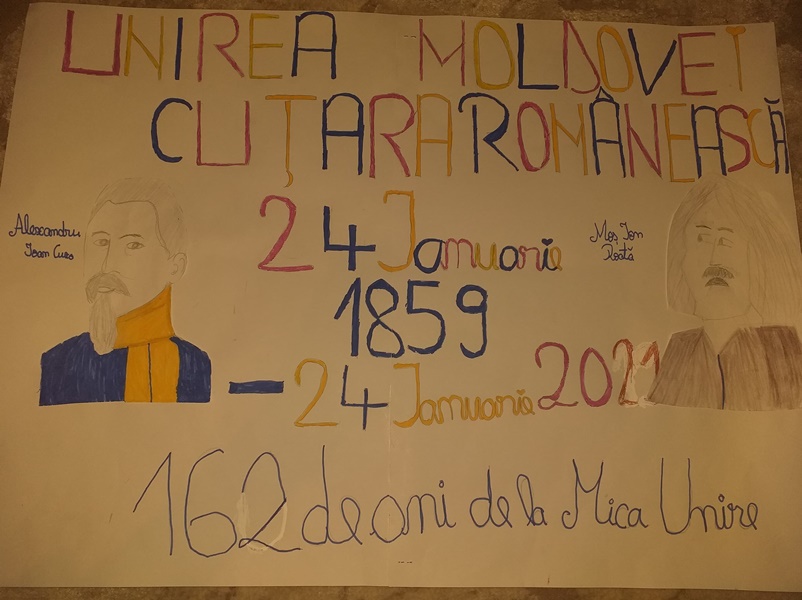 UNIREA MOLDOVEI
CU ȚARA ROMÂNEASCĂ
Alexandru
Ioan Cuza
24 Ianuarie
1859
Moș Ion
Roată
- 24 Ianuarie 2021
162 de ani de la Mica Unire